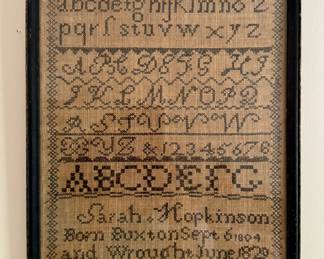 abcdefghijklmno2
pqrſstuvwxyz
ABCDEFG HI
JKLMNOPQ
RSTUVW
XYZ &12345678
ABCDEFG
Sarah Hopkinson
Born Buxton Sept 6 1804
and Wrought June 1820